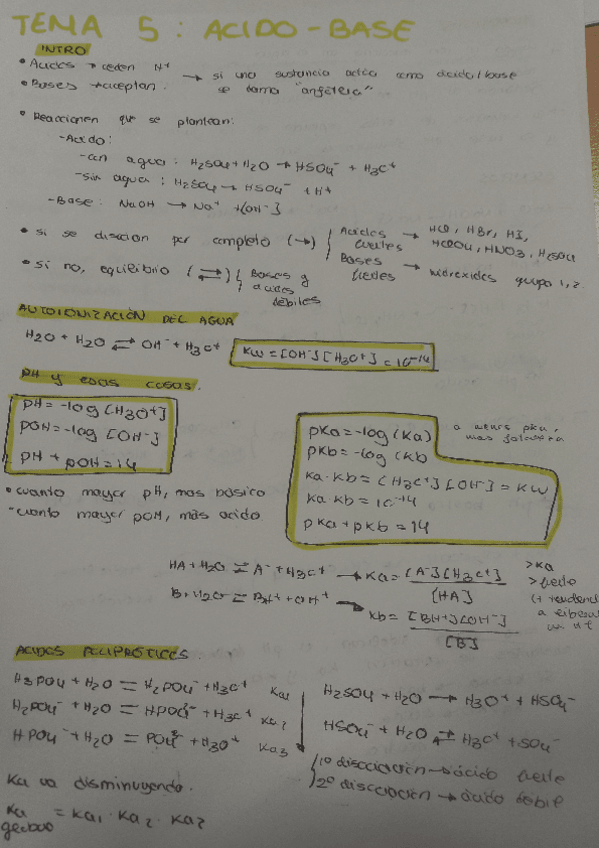 TEMA 5: ACIDO-BASE
INTRO
• Acidos → ceden H⁺
• Bases → aceptan.
→ si una sustancia actúa como ácido/base
se llama "anfótera"
• Reacciones que se plantean:
- Acido:
- con agua: H₂SO₄ + H₂O → HSO₄⁻ + H₃O⁺
- sin agua: H₂SO₄ → HSO₄⁻ + H⁺
- Base: NaOH → Na⁺ + [OH⁻]
• si se disocian por completo (→) { Acidos fuertes → HCl, HBr, HI, HClO₄, HNO₃, H₂SO₄
Bases fuertes → hidroxidos grupo 1, 2.
• si no, equilibrio (⇌) { Bases y acidos débiles
AUTOIONIZACIÓN DEL AGUA
H₂O + H₂O ⇌ OH⁻ + H₃O⁺ Kw = [OH⁻][H₃O⁺] = 10⁻¹⁴
PH y esas cosas.
pH = -log [H₃O⁺]
pOH = -log [OH⁻]
pH + pOH = 14
pKa = -log (Ka)
pKb = -log (Kb
Ka · Kb = [H₃O⁺][OH⁻] = Kw
Ka · Kb = 10⁻¹⁴
pKa + pKb = 14
a menor pka,
mas
• cuanto mayor pH, mas básico
- cuanto mayor pOH, más acido.
HA + H₂O ⇌ A⁻ + H₃O⁺ → Ka = [A⁻][H₃O⁺] / [HA]
B + H₂O ⇌ BH⁺ + OH⁺ → Kb = [BH⁺][OH⁻] / [B]
> Ka
> fuerte
(+ tendenci
a
H⁺
ACIDOS POLIPRÓTICOS.
H₃PO₄ + H₂O = H₂PO₄⁻ + H₃O⁺ Ka₁
H₂PO₄⁻ + H₂O = HPO₄⁻ + H₃O⁺ Ka₂
HPO₄⁻ + H₂O = PO₄³⁻ + H₃O⁺ Ka₃
H₂SO₄ + H₂O → H₃O⁺ + HSO₄⁻
HSO₄⁻ + H₂O ⇌ H₃O⁺ + SO₄⁻
{ 1º disociación → ácido fuerte
2º disociación → ácido debil
Ka va disminuyendo.
Ka global = Ka₁ · Ka₂ · Ka₂